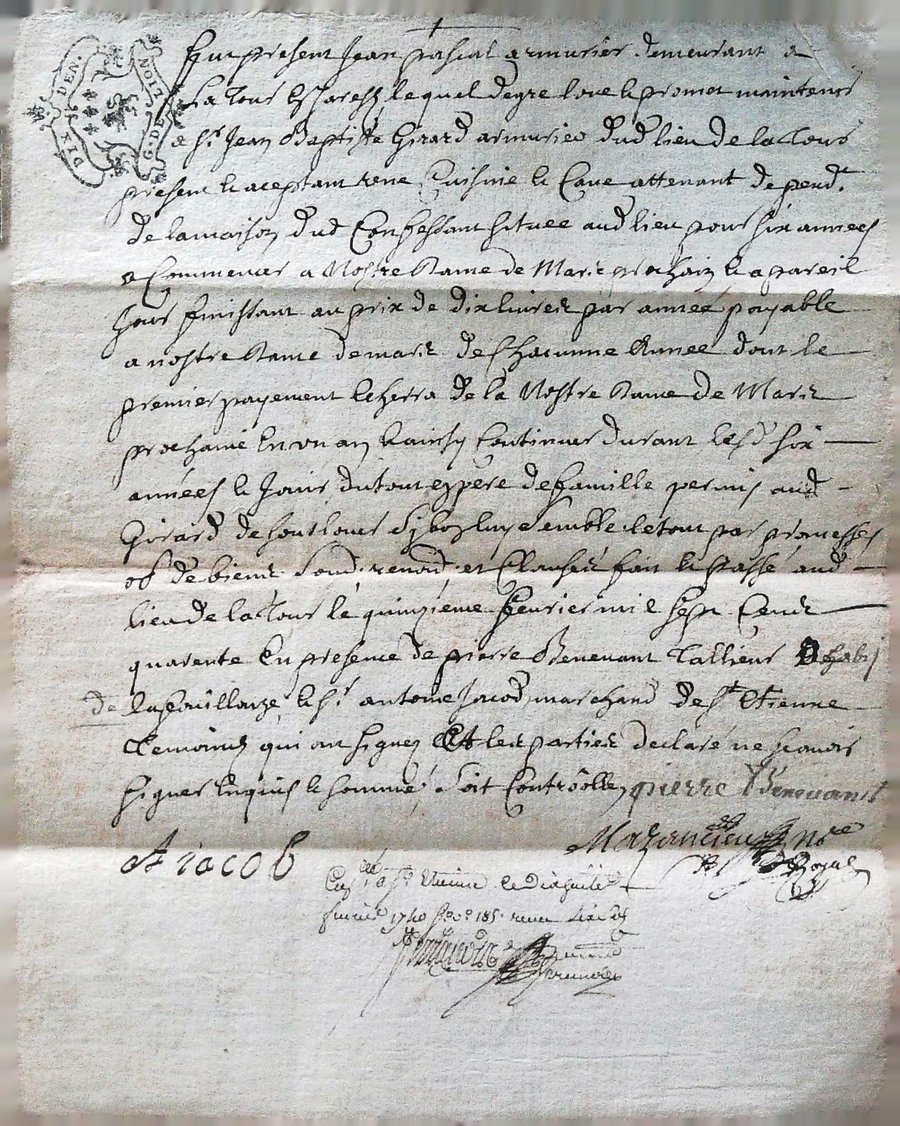 DIX DEN. G. DE LION
Fut present Jean pascal armurier demeurant a
La Tour lequel degre loue & promet maintenir
a Sr. Jean Baptiste Girard armurier dud lieu de la Tour
present & aceptant une Cuisine & Cave attenant depend.t
de la maison dud Confessant situee aud lieu pour six années
a Commencer a Nostre Dame de Mars prochain & a pareil
Jour finissant au prix de dix livres par année payable
a nostre Dame de mars de Chacunne Année dont le
premier payement Escherra de la Nostre Dame de Mars
prochaine en un an & ainsy Continuer durant lesd six
années & Jouir du tout en père de famille permis aud
Girard de soutlouer Sy bon luy Semble le tout par promesses
ob de biens Soud. renond. et Clauses fait & Passé aud
lieu de la Tour le quinzieme feuvrier mil sept Cent
quarente En presence de pierre Benevant Tallieur
de la fouillouze & Sr. antoine Jacod marchand de St. Etienne
Temoins qui ont signez Et les parties declaré ne scavoir
signer Enquis & sommé. Soit Controolle, pierre Benevant
A iacod
Mazancieux Nore
Royal
Con.llé a St. Etienne le dixhuit
fevrier 1740 fo. 185